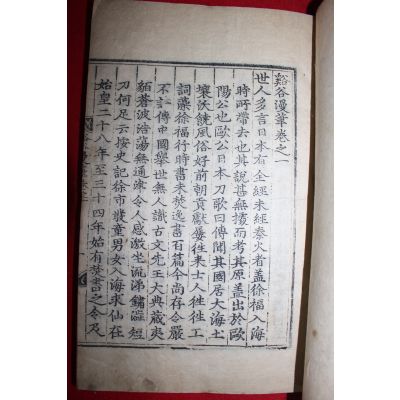 谿谷漫筆卷之一
世人多言日本有全經未經秦火者盖徐福入海
時所帶去也其說甚無據而考其原盖出於歐
陽公也歐公日本刀歌曰傳聞其國居大海土
壤沃饒風俗好前朝貢獻屢徃來士人徃徃工
詞藻徐福行時書未焚逸書百篇今尚存令嚴
不許傳中國擧世無人識古文先王大典藏夷
貊蒼波浩蕩無通津令人感激坐流涕鏽澁短
刀何足云按史記徐市發童男女入海求仙在
始皇二十八年至三十四年始有焚書之令及